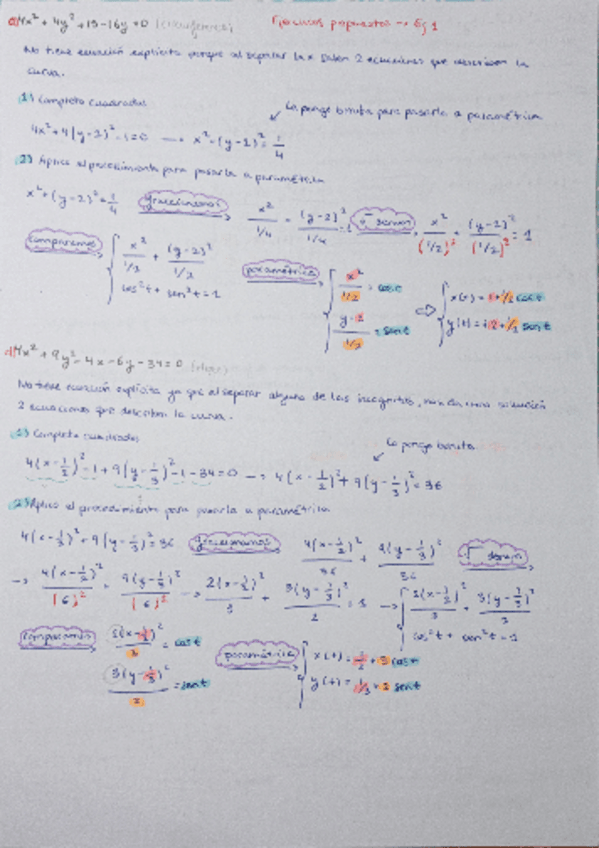 a) 4x² + 4y² + 15 - 16y = 0 (circunferencia) Ejercicios propuestos → Ej 1
No tiene ecuación explícita porque al separar la x salen 2 ecuaciones que describen la
curva.
1) Completo cuadrados
↙ La pongo bonita para pasarla a paramétrica
4x² + 4(y-2)² - 1 = 0 → x² + (y-2)² = 1/4
2) Aplico el procedimiento para pasarla a paramétrica
x² + (y-2)² = 1/4 fraccionamos → x²/1/4 + (y-2)²/1/4 = 1 x²/(1/2)² + (y-2)²/(1/2)² = 1
comparamos { x²/1/2 + (y-2)²/1/2
cos²t + sen²t = 1
paramétrica { x²/1/2 = cos t ⇒ { x(t) =
y-2/1/2 = sen t
d) 4x² + 9y² - 4x - 6y - 34 = 0 (elipse)
No tiene ecuación explícita ya que al separar alguna de las incógnitas,
2 ecuaciones que describen la curva.
1) Completo cuadrados
↙ La pongo bonita
4(x-1/2)² - 1 + 9(y-1/3)² - 1 - 34 = 0 → 4(x-1/2)² + 9(y-1/3)² = 36
2) Aplico el procedimiento para pasarla a paramétrica
+ 9(y-1/3)² = 36 fraccionamos 4(x-1/2)²/36 + 9(y-1/3)²/36
→ 4(x-1/2)²/(6)² + 9(y-1/3)²/(6)² → 2(x-1/2)²/3 + 3(y-1/3)²/2 = 1 → { 2(x-1/2)²/3 + 3(y-1/3)²
cos²t + sen²t = 1
comparando 2(x-1/2)² = cos t
3(y-1/3)²/2 = sen t
paramétrica { x(t) = 1/2 + 3 cos t
y(t) = 1/3 + 2 sen t